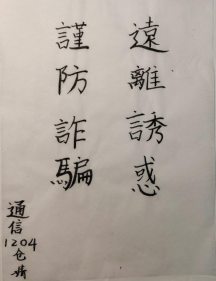 遠離誘惑
謹防詐騙
通信1204仓婧